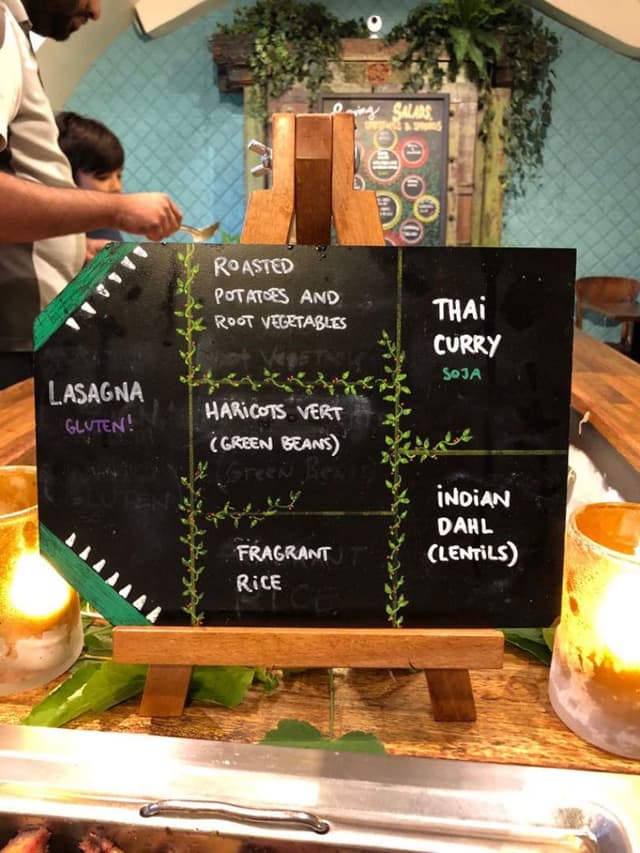 LASAGNA
GLUTEN!
ROASTED
POTATOES AND
ROOT VEGETABLES
HARICOTS VERT
(GREEN BEANS)
FRAGRANT
RICE
THAI
CURRY
SOJA
INDIAN
DAHL
(LENTILS)
SALADS